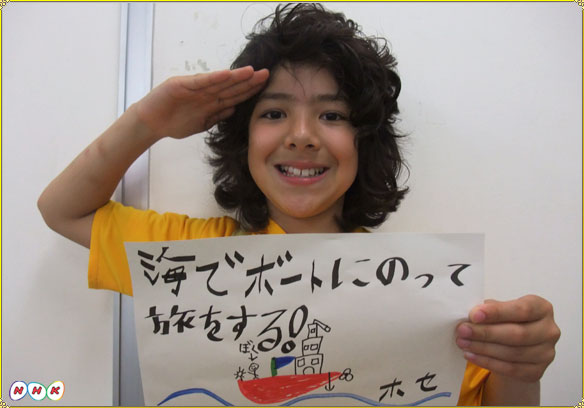 海でボートにのって
旅をする!
ぼく
ホセ
NHK